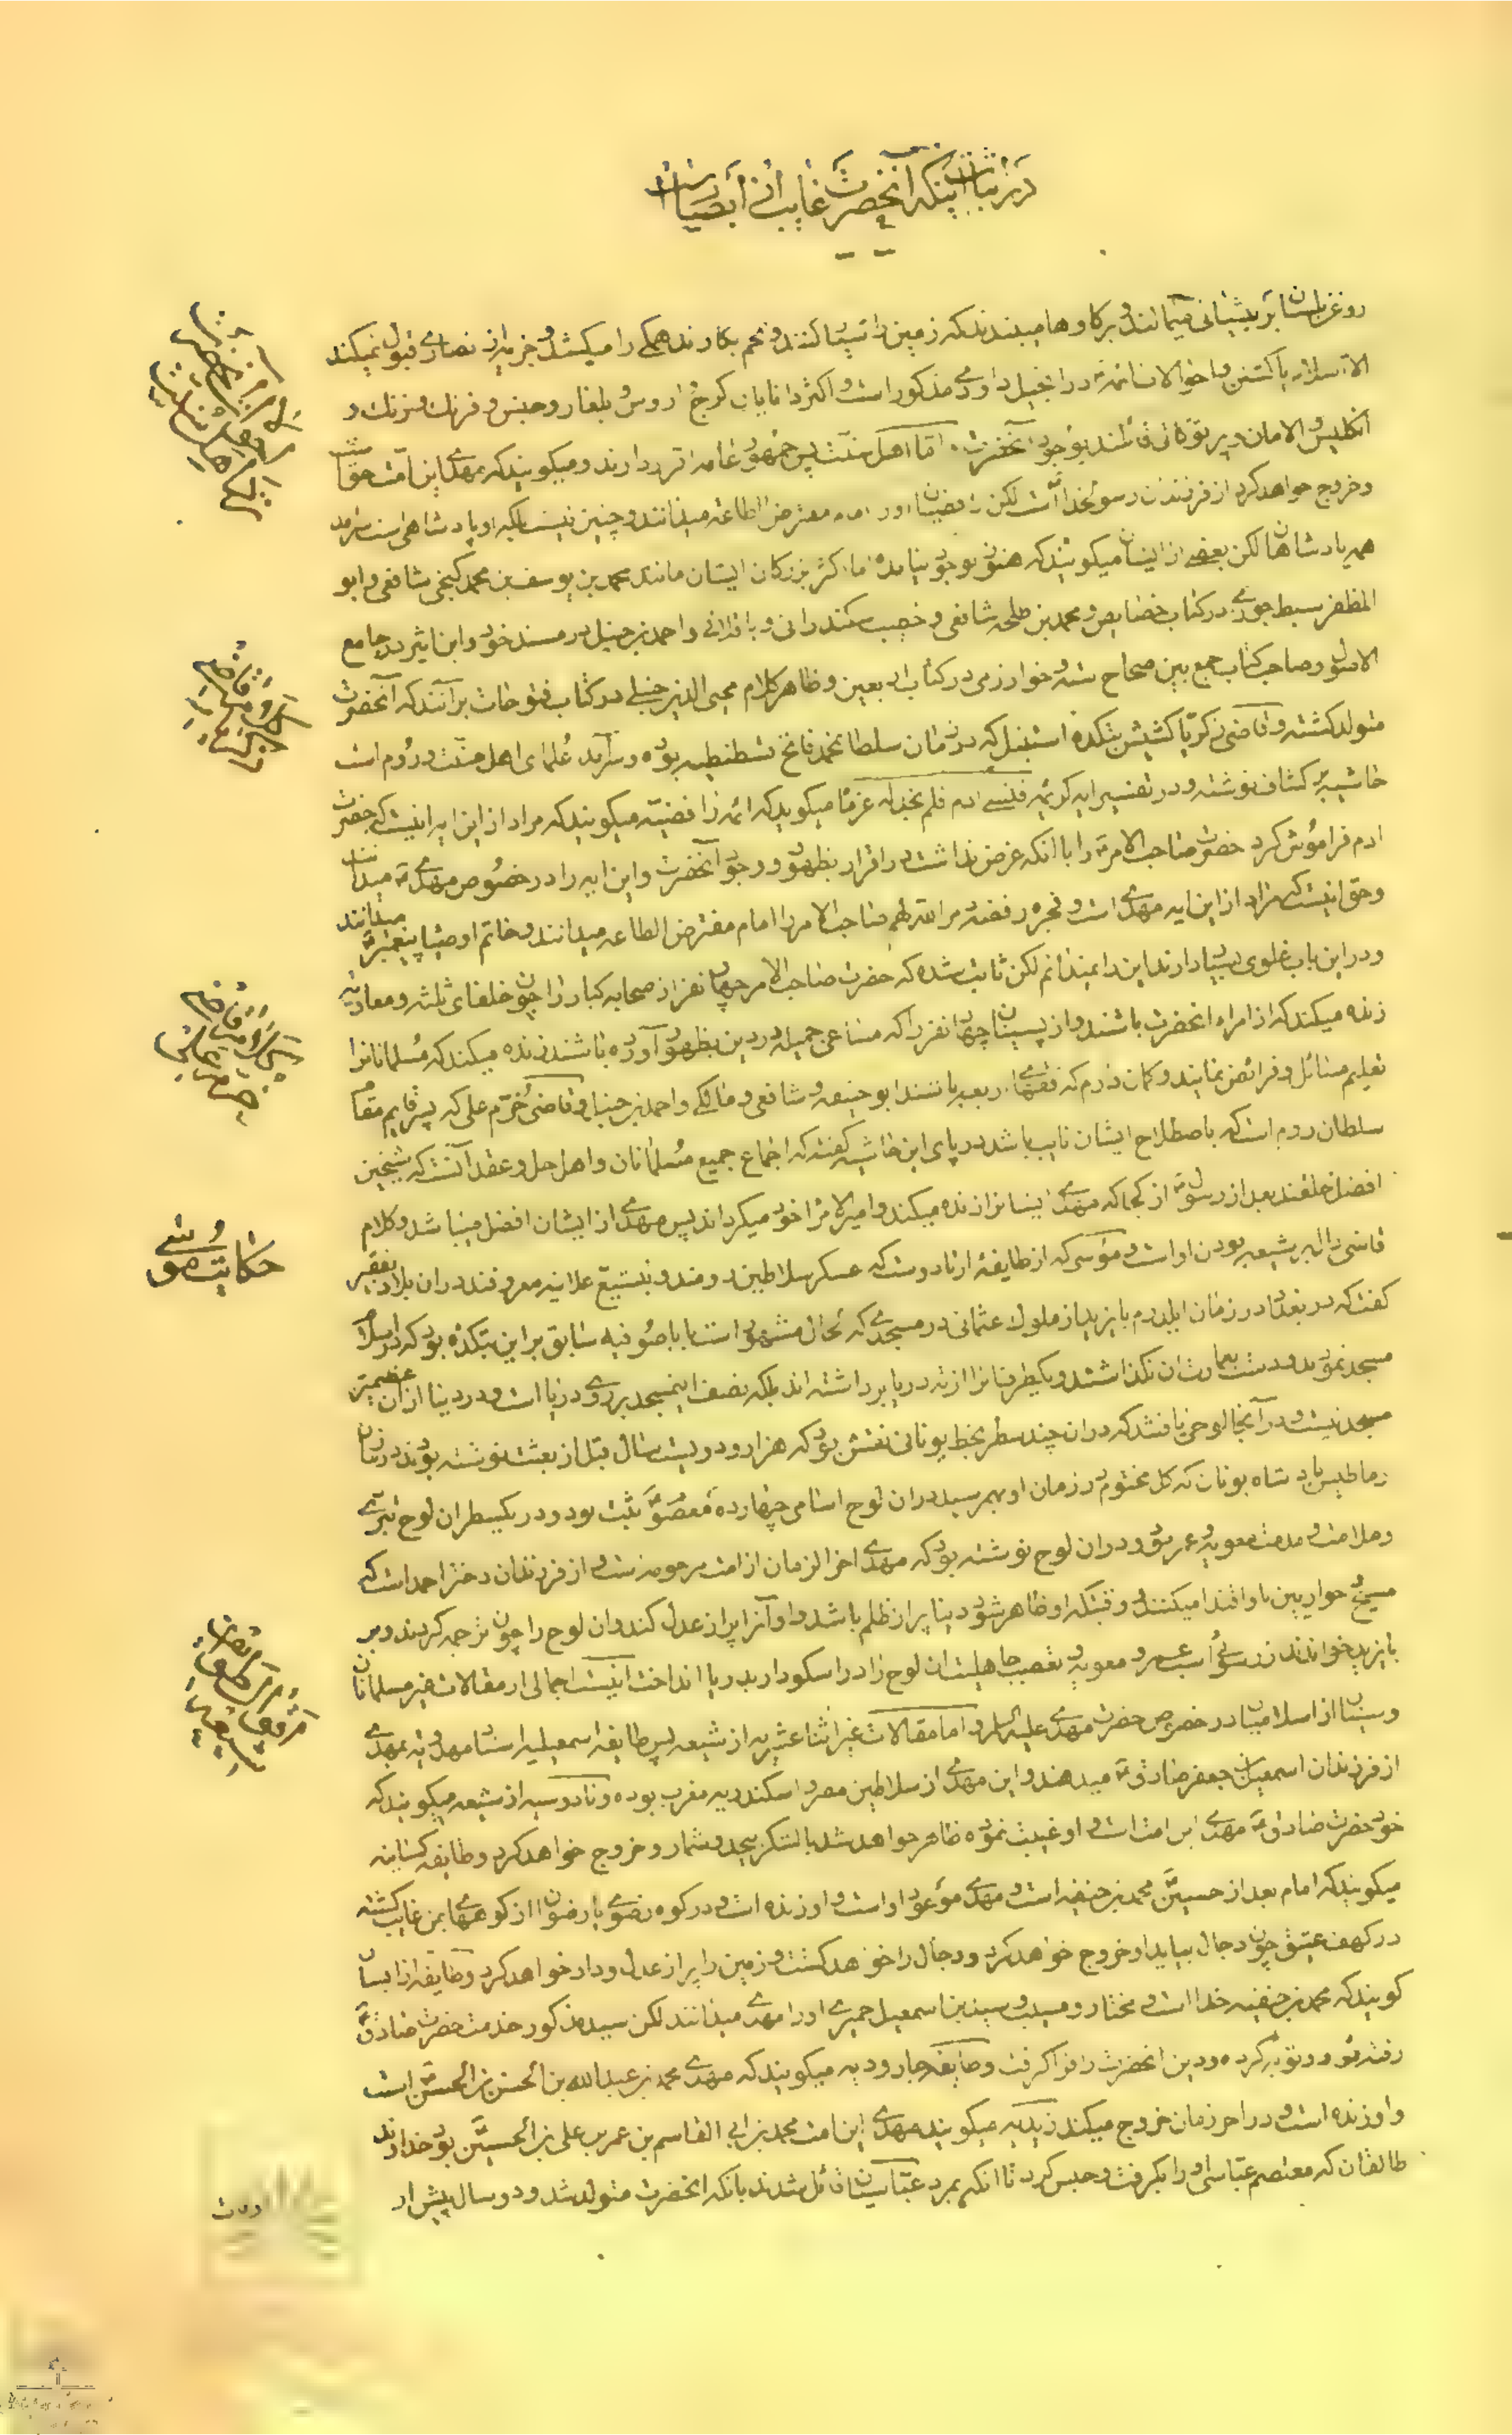 در اثبات اینکه آنحضرت غایب از ابصار است
روغن بلسان بر پیشانی میمالند و بر کاوها میبندند که زمین را شیار کنند و تخم بکارند همکی را میکشد و جزیه از نصاری قبول نمیکند
الا اسلام یا کشتن و احوالات ائمه در انجیل داودی مذکور است و اکثر دانایان کرج و اروس و بلغار و حبش و فرنك و
انکلیس و الامان و پرتوکانی قائلند بوجود آنحضرت اما اهل سنت پس جمهور عامه اقرار دارند و میکویند که مهدی این امت حق است
و خروج خواهد کرد از فرزندان رسولخدا است لکن رافضیان او را امام مفترض الطاعه میدانند و چنین نیست بلکه او پادشاهی است سرآمد
همه پادشاهان لکن بعضی از ایشان میکویند که هنوز بوجود نیامده اما اکثر بزرکان ایشان مانند محمد بن یوسف بن محمد کنجی شافعی و ابو
المظفر سبط جوزی در کتاب خصایص و محمد بن طلحه شافعی و خصیب اسکندرانی و باقلانی و احمد بن حنبل در مسند خود و ابن اثیر در جامع
الاصول و صاحب کتاب جمع بین صحاح سته و خوارزمی در کتاب اربعین و ظاهر کلام محیی الدین حنبلی در کتاب فتوحات برآنند که آنحضرت
متولد کشته و قاضی زکریا کشیش بتکده استنبل که در زمان سلطانمحمد فاتح قسطنطیه بوده و سرآمد علمای اهل سنت و روم است
حاشیه بر کشاف نوشته و در تفسیر ایه کریمه فنسی ادم فلم نجد له عزما میکوید که ائمه رافضیه میکویند که مراد از این ایه اینست که حضرت
ادم فراموش کرد حضرت صاحب الامر را با انکه غرض نداشت در اقرار بظهور و وجود آنحضرت و این ایه را در خصوص مهدی میدانند
و حق اینست که مراد از این ایه مهدی است و فجره رفضه صاحب الامر را امام مفترض الطاعه میدانند و خاتم اوصیا پیغمبر میدانند
و در این باب غلوی بسیار دارند این را نمیدانم لکن ثابت شده که حضرت صاحب الامر چهار نفر از صحابه کبار را چون خلفای ثلثه و معاویه
زنده میکند که از امراء انحضرت باشند و از پسینیان چهار نفر را که مساعی جمیله در دین بظهور آورده باشند زنده میکند که مسلمانانرا
تعلیم مسائل و فرائض نمایند و کمان دارم که فقهای اربعه باشند ابو حنیفه و شافعی و مالکی و احمد بن حنبل و قاضی خرم علی که پسر قایم مقام
سلطان روم است که باصطلاح ایشان نایب باشد در پای این حاشیه کفته که اجماع جمیع مسلمانان و اهل حل و عقد آنست که شیخین
افضل خلقند بعد از رسول از کجا که مهدی ایشانرا زنده میکند و امیر الامرا خود میکرداند پس مهدی از ایشان افضل میباشد و کلام
قاضی دال بر شیعه بودن او است و موسی که از طایفه ارنادوست که عسکر سلاطین رومند و بتشیع علانیه معروفند در ان بلاد بفقیر
کفت که در بغداد در زمان ایلدرم بایزید از ملوك عثمانی در مسجدی که بحال مشهور است بایاصوفیه سابق بر این بتکده بود که در اسلام
مسجد نمودند و دست بعمارت ان نکذاشتند و یکطرف بنا را از ته دریا برداشته اند بلکه نصف اینمسجد بر روی دریا است و در دنیا از ان عظیمتر
مسجد نیست و در آنجا لوحی یافتند که در ان چند سطر بخط یونانی نقش بود که هزار و دویست سال قبل از بعثت نوشته بودند در زمان
رماطیس پادشاه یونان که کل مختوم در زمان او بهم رسید در ان لوح اسامی چهارده معصوم ثبت بود و در یکسطر ان لوح تبری
و ملامت و مذمت معویه و عمر بود و در ان لوح نوشته بود که مهدی اخر الزمان از امت مرحومه است و از فرزندان دختر احمد است که
مسیح و حواریین باو اقتدا میکنند و وقتیکه او ظاهر شود دنیا پر از ظلم باشد و او آنرا پر از عدل کند و ان لوح را چون ترجمه کردند و بر
بایزید خواندند از رسوائی عمر و معویه و تعصب جاهلیت ان لوح را در اسکودار بدریا انداخت اینست اجمالی از مقالات غیر مسلمانان
و سنیان از اسلامیان در خصوص حضرت مهدی علیه السلام و اما مقالات غیر اثنا عشریه از شیعه پس طایفه اسمعیلیه است مهدویه بمهدی
از فرزندان اسمعیل بن جعفر صادق میدهند و این مهدی از سلاطین مصر و اسکندریه مغرب بوده و ناووسیه از شیعه میکویند که
خود حضرت صادق مهدی این امت است و او غیبت نموده ظاهر خواهد شد با لشکر بیحد و شمار و خروج خواهد کرد و طایفه کسانیه
میکویند که امام بعد از حسین محمد بن حنفیه است و مهدی موعود او است و او زنده است و در کوه رضوی یا رضوان از کوههای یمن غایب کشته
در کهف عتیق چون دجال بیاید او خروج خواهد کرد و دجال را خواهد کشت و زمین را پر از عدل و داد خواهد کرد و طایفه از ایشان
کویند که محمد بن حنفیه خدا است و مختار و مسیب و سید بن اسمعیل حمیری او را مهدی میدانند لکن سید مذکور خدمت حضرت صادق
رفته بود و توبه کرده و دین انحضرت را فرا کرفت و طایفه جارودیه میکویند که مهدی محمد بن عبدالله بن الحسن بن الحسن است
و او زنده است و در اخر زمان خروج میکند زیدیه میکویند مهدی این امت محمد بن ابی القاسم بن عمر بن علی بن الحسین بود خداوند
طالقان که معتصم عباسی او را بکرفت و حبس کرد تا انکه بمرد عباسیان قائل شدند بانکه انحضرت متولد شد و دو سال پیش از
حکایت موسی